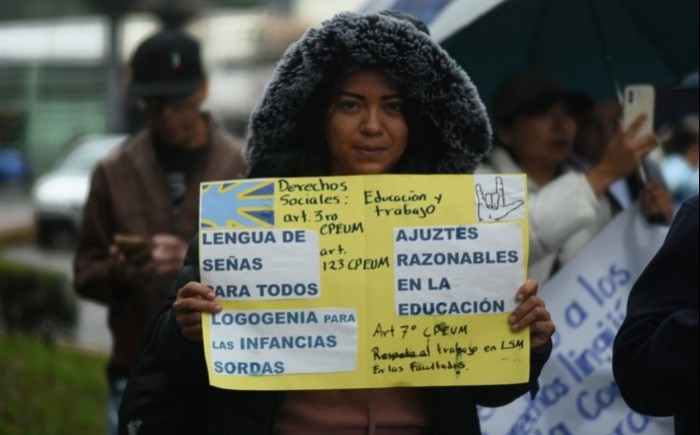 Derechos
Sociales:
art. 3ro
CPEUM
art.
123 CPEUM
Educación y
trabajo
LENGUA DE
SEÑAS
PARA TODOS
AJUZTES
RAZONABLES
EN LA
EDUCACIÓN
LOGOGENIA PARA
LAS INFANCIAS
SORDAS
Art 7° CPEUM
Respeto al trabajo en LSM
En las Facultades.
a los
lingüí